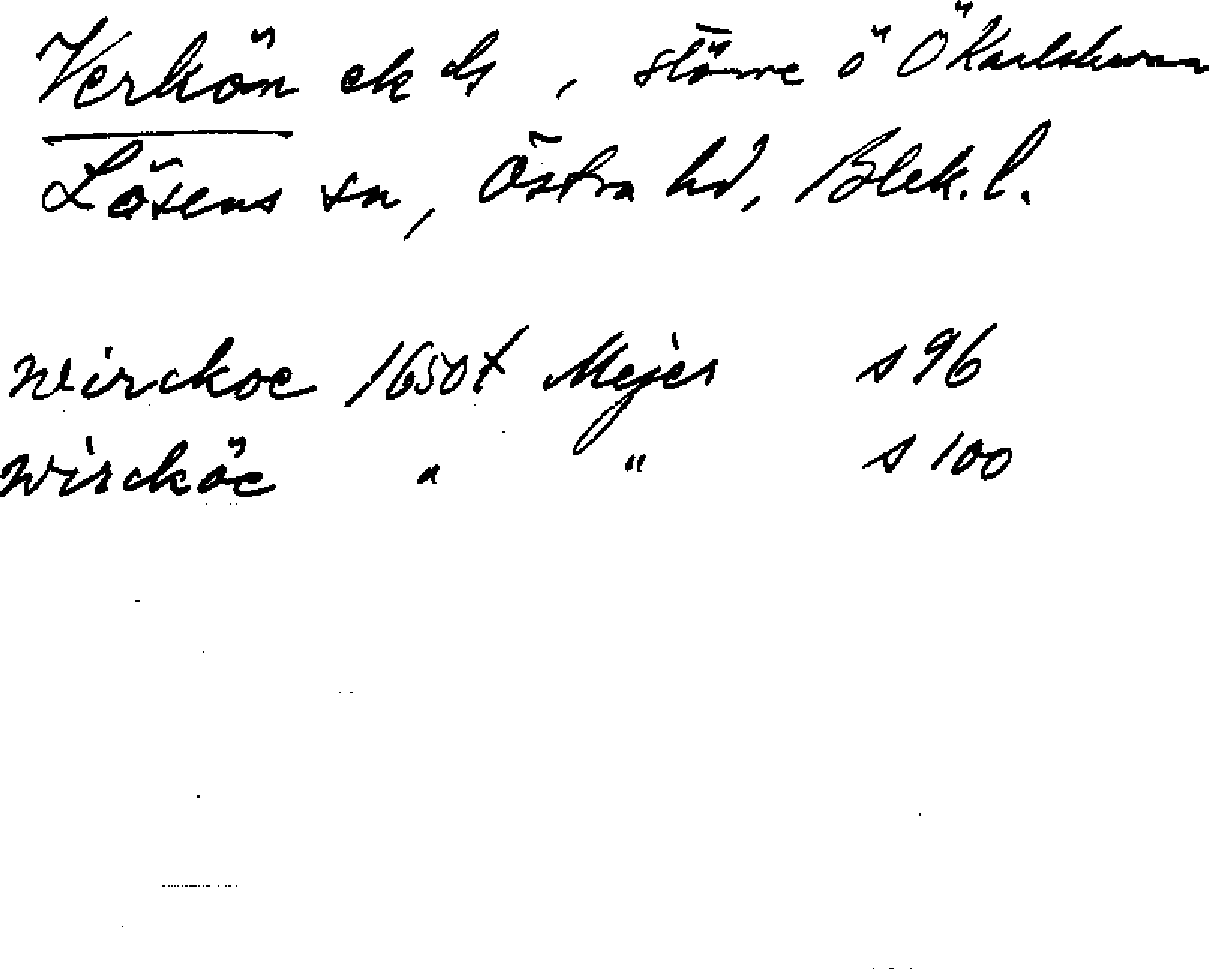 Verkön ek ds, större ö Ö Karlskrona
Lösens sn, Östra hd, Blek. l.
Wirckoe 1650t Mejer s 96
Wircköe " " s 100